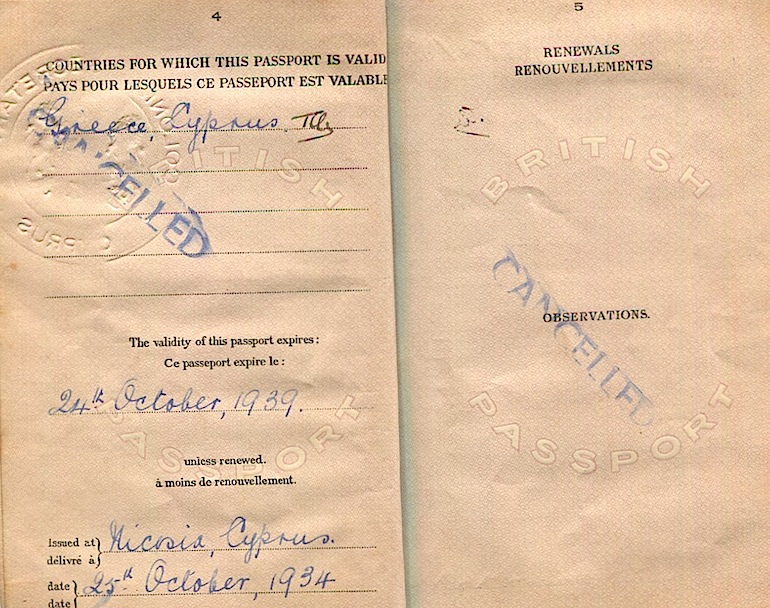 4
COUNTRIES FOR WHICH THIS PASSPORT IS VALID
PAYS POUR LESQUELS CE PASSEPORT EST VALABLE
Greece, Cyprus.
CANCELLED
CYPRUS
BRITISH
The validity of this passport expires:
Ce passeport expire le:
24th October, 1939.
PASSPORT
unless renewed.
à moins de renouvellement.
Issued at} Nicosia, Cyprus.
délivré à}
date} 25th October, 1934
date}
5
RENEWALS
RENOUVELLEMENTS
BRITISH
CANCELLED
OBSERVATIONS.
PASSPORT